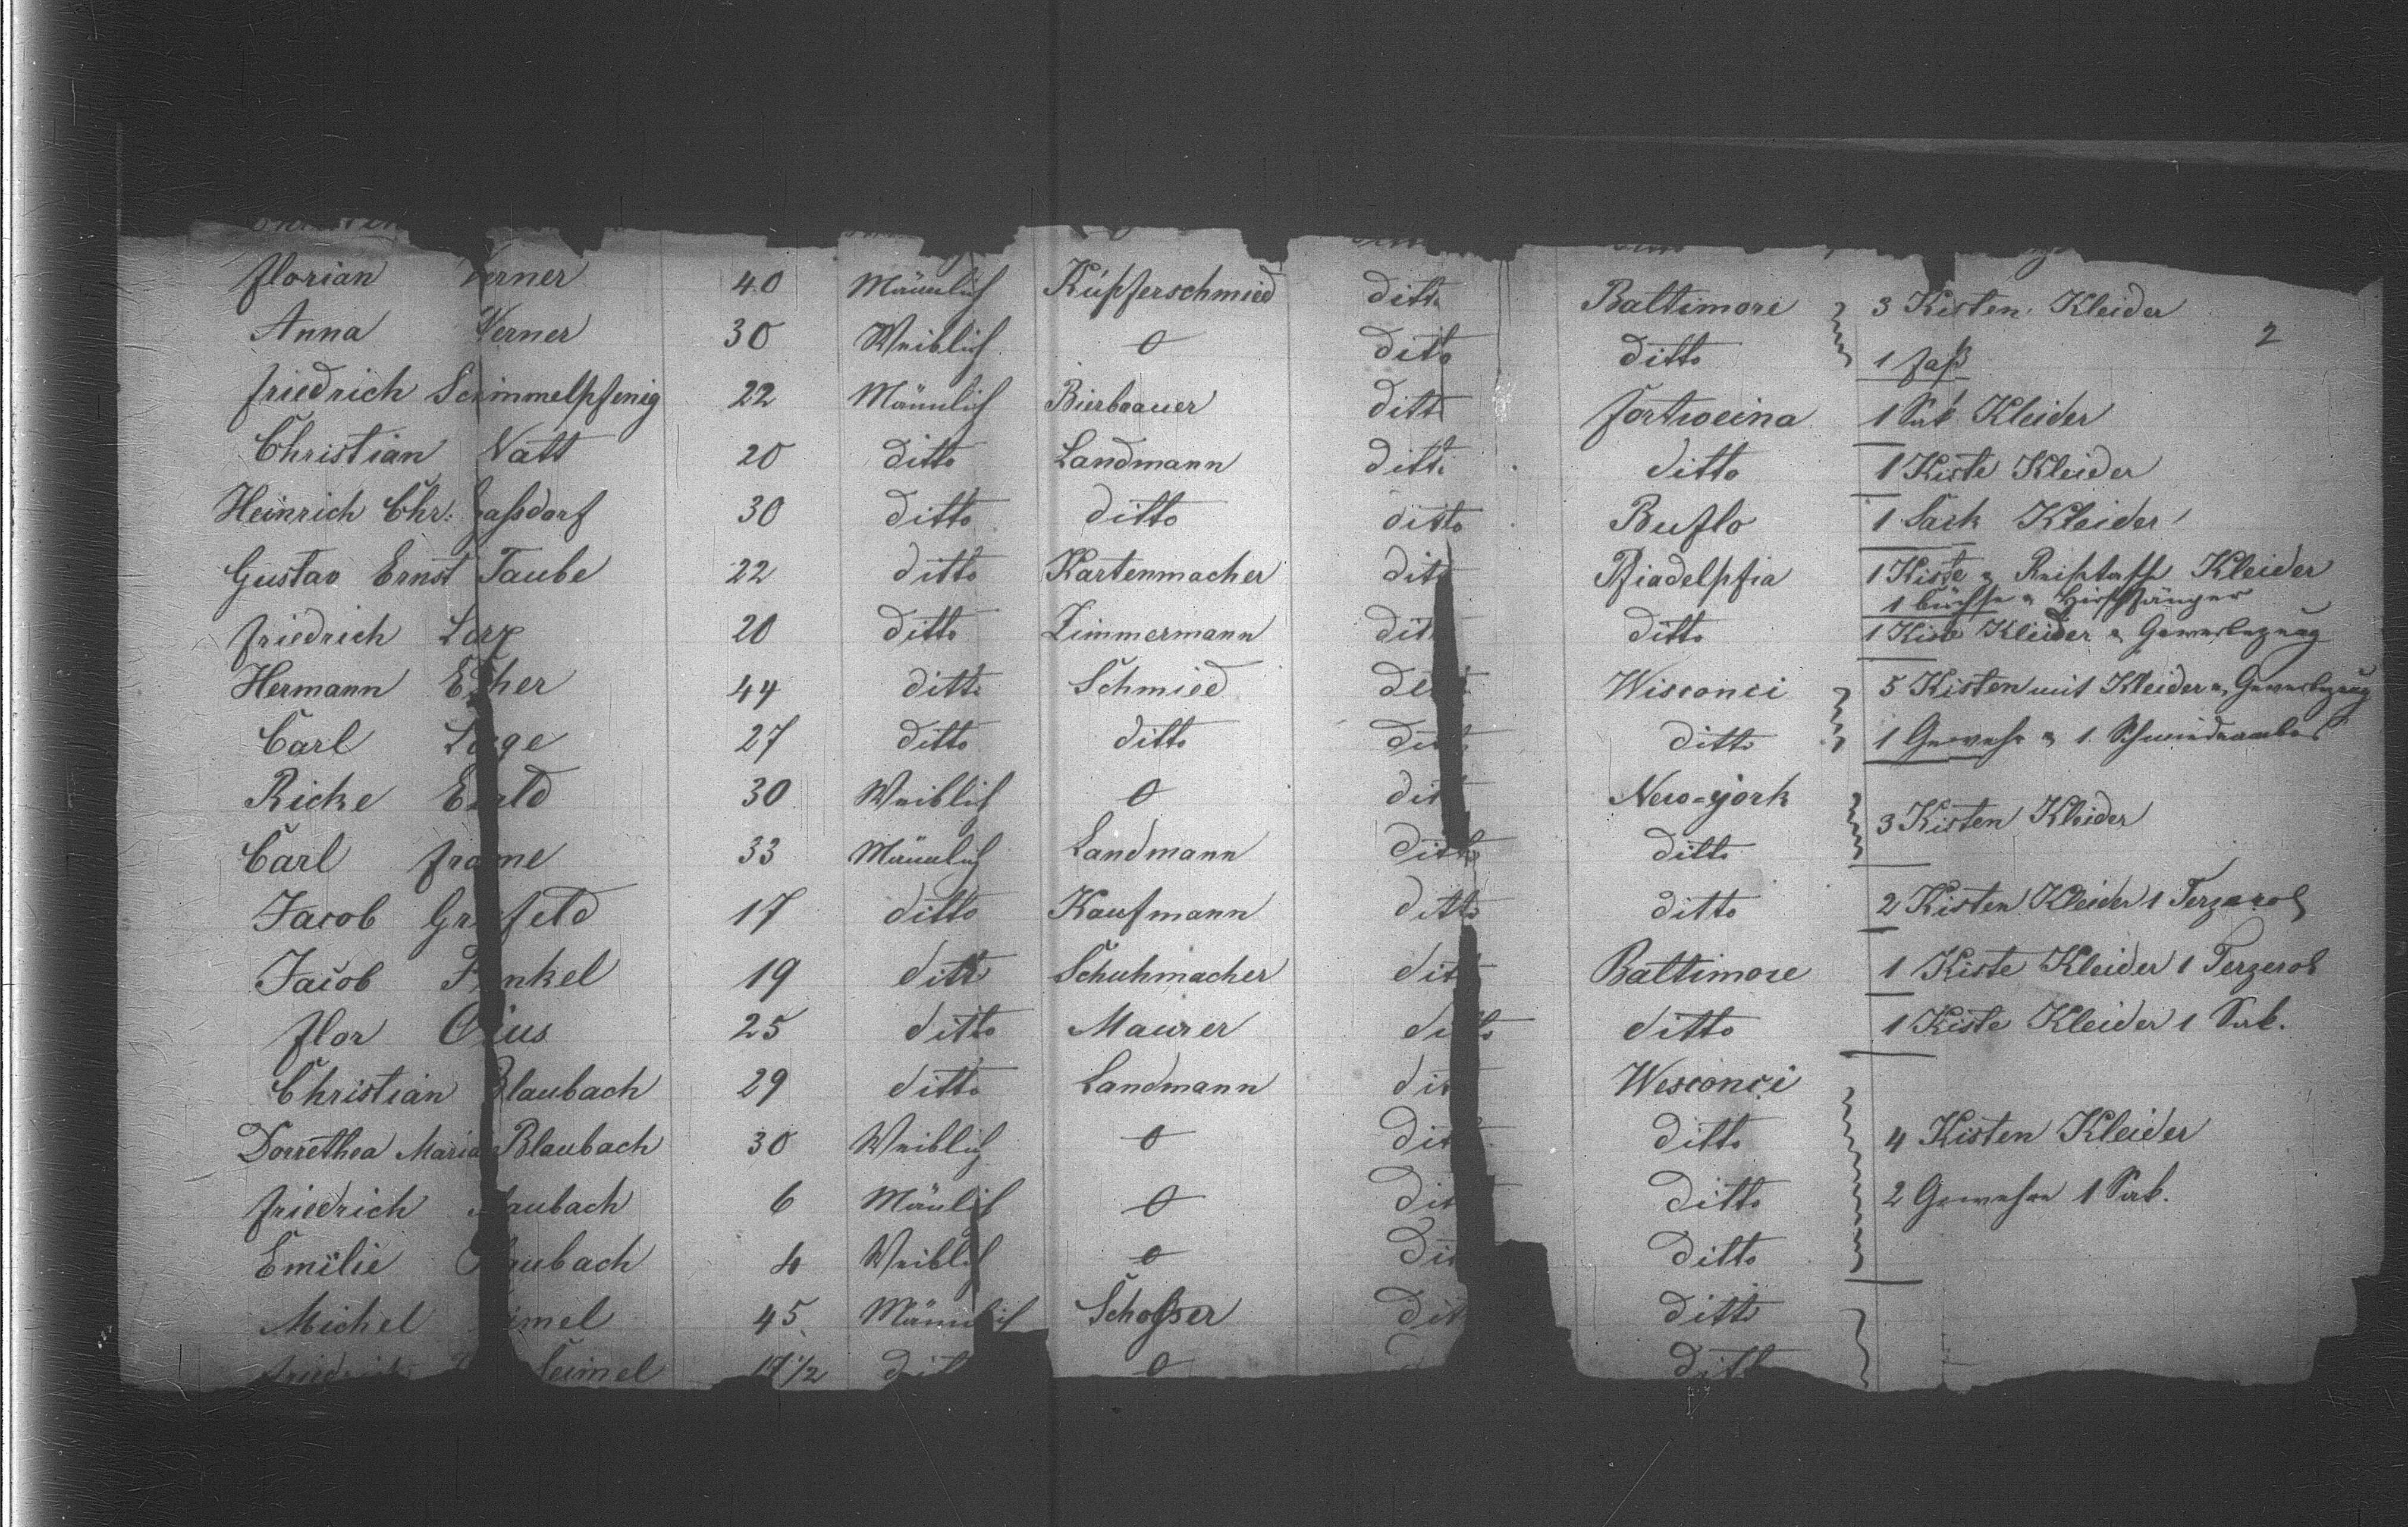 Florian Verner 40 Männlich Kupferschmied ditto Baltimore 3 Kisten Kleider
2
Anna Verner 30 Weiblich 0 ditto ditto 1 Faß
Friedrich Schimmelpfenig 22 Männlich Bierbrauer ditto Fortweina 1 Sack Kleider
Christian Natt 20 ditto Landmann ditto ditto 1 Kiste Kleider
Heinrich Chr. 30 ditto ditto ditto Buflo 1 Sack Kleider
Gustav Ernst Taube 22 ditto Kartenmacher ditto Pfiadelpfia 1 Kiste & Kleider
1 Büchse & Hirschfänger
Friedrich 20 ditto Zimmermann ditto ditto 1 Kiste Kleider &
Hermann 44 ditto Schmied ditto Wisconci 5 Kisten mit Kleider &
Carl 27 ditto ditto ditto ditto 1 Gewehr & 1 Schmiedeambos
Ricke 30 Weiblich 0 ditto New-york
3 Kisten Kleider
Carl 33 Männlich Landmann ditto ditto
Jacob 17 ditto Kaufmann ditto ditto 2 Kisten Kleider 1 Terzerol
Jacob 19 ditto Schuhmacher ditto Baltimore 1 Kiste Kleider 1 Terzerol
Flor 25 ditto Maurer ditto ditto 1 Kiste Kleider 1 Sack.
Christian Blaubach 29 ditto Landmann ditto Wesconci
Dorrethea Maria Blaubach 30 Weiblich 0 ditto ditto 4 Kisten Kleider
Friedrich Blaubach 6 Mänlich 0 ditto ditto 2 Gewehre 1 Sack.
Emilie Blaubach 4 Weiblich 0 ditto ditto
Michel 45 Männlich Schoßser ditto ditto
Friedrich Seimel 17 1/2 ditto 0 ditto